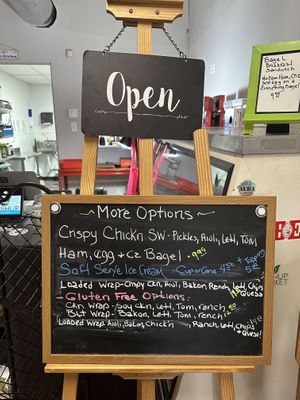 Open
Bagel
Breakfast
Sandwich
Ham, Ch
egg in a
Everything Bagel
9.99
~ More Options ~
Crispy Chickn Sw - Pickles, Aioli, Lett, Tom,
Ham, egg + cz Bagel - 9.99
Soft Serve Ice Cream Cup or Cone 4.50 + Toppings
Loaded Wrap - Crispy Ckn, Aioli, Bakon, Ranch, Lett, Chips
Queso
- Gluten Free Options:
Ckn Wrap - Soy Ckn, Lett, Tom, ranch
BLT Wrap - Bakon, Lett, Tom, ranch
Loaded Wrap Aioli, Bakon, Chick'n, Ranch, Lett, chips
Queso!